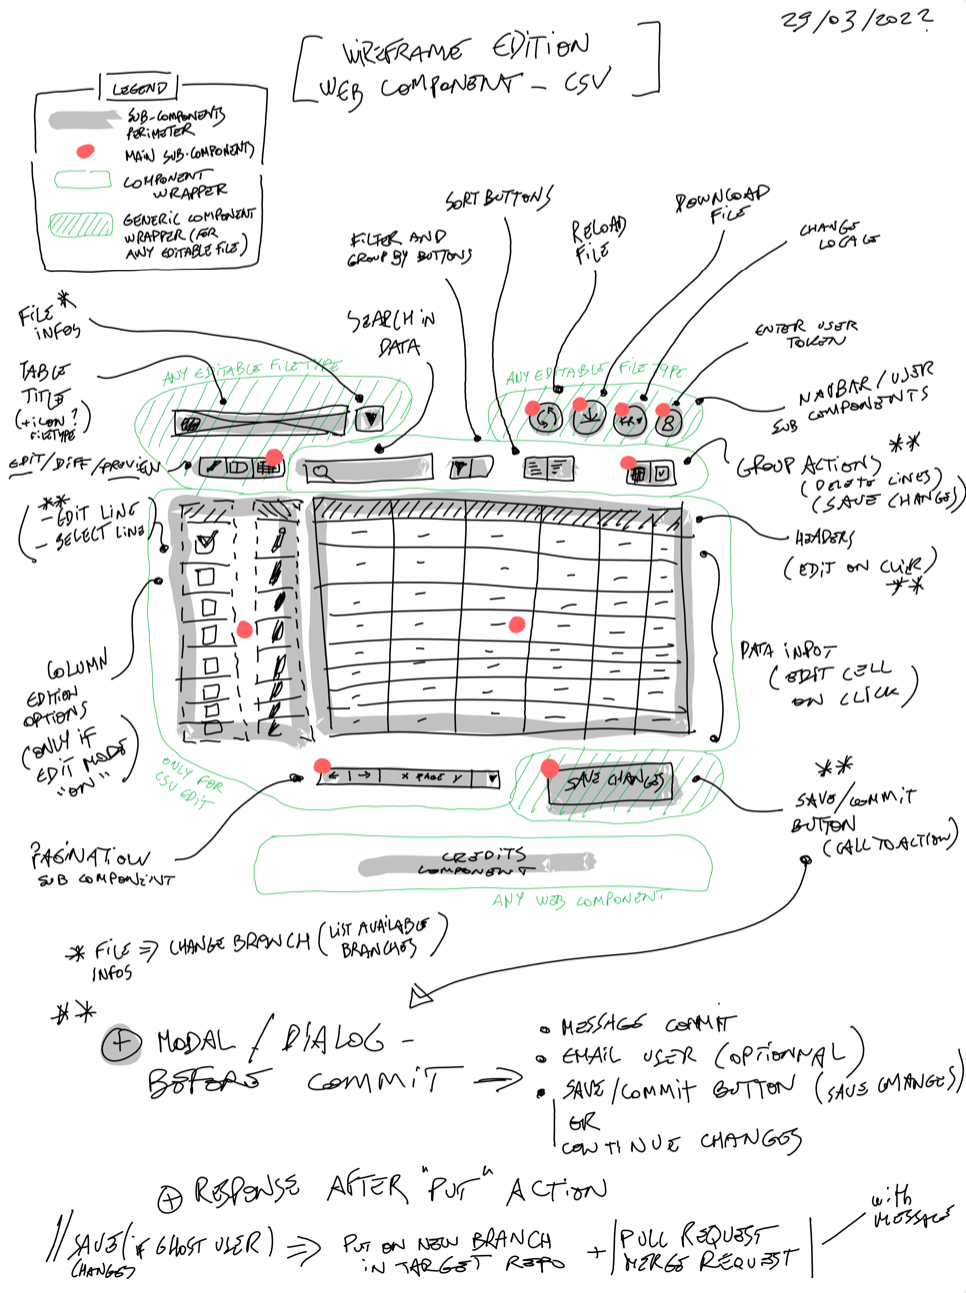 29/03/2022
WIREFRAME EDITION
WEB COMPONENT - CSV
LEGEND
SUB-COMPONENTS
PERIMETER
MAIN SUB-COMPONENTS
COMPONENT
WRAPPER
GENERIC COMPONENT
WRAPPER (FOR
ANY EDITABLE FILE)
SORT BUTTONS
DOWNLOAD
FILE
RELOAD
FILE
CHANGE
LOCALE
FILTER AND
GROUP BY BUTTONS
SEARCH IN
DATA
ENTER USER
TOKEN
FILE *
INFOS
TABLE
TITLE
(+ ICON ?
FILETYPE)
ANY EDITABLE FILETYPE
ANY EDITABLE FILE TYPE
FR
NAVBAR / USER
SUB COMPONENTS
EDIT/DIFF/PREVIEW
GROUP ACTIONS **
(DELETE LINES)
(SAVE CHANGES)
**
- EDIT LINE
- SELECT LINE
HEADERS
(EDIT ON CLICK)
**
COLUMN
EDITION
OPTIONS
(ONLY IF
EDIT MODE
"ON")
DATA INPUT
(EDIT CELL
ON CLICK)
ONLY FOR
CSV EDIT
← | → | X PAGE Y
SAVE CHANGES
**
SAVE/COMMIT
BUTTON
(CALL TO ACTION)
PAGINATION
SUB COMPONENT
CREDITS
COMPONENT
ANY WEB COMPONENT
* FILE => CHANGE BRANCH (LIST AVAILABLE
INFOS
BRANCHES)
**
+ MODAL / DIALOG -
BEFORE COMMIT →
• MESSAGE COMMIT
• EMAIL USER (OPTIONNAL)
• SAVE/COMMIT BUTTON (SAVE CHANGES)
OR
CONTINUE CHANGES
+ RESPONSE AFTER "PUT" ACTION
// SAVE (if GHOST USER) => PUT ON NEW BRANCH
CHANGES
IN TARGET REPO
+ | PULL REQUEST
MERGE REQUEST |
with
MESSAGE